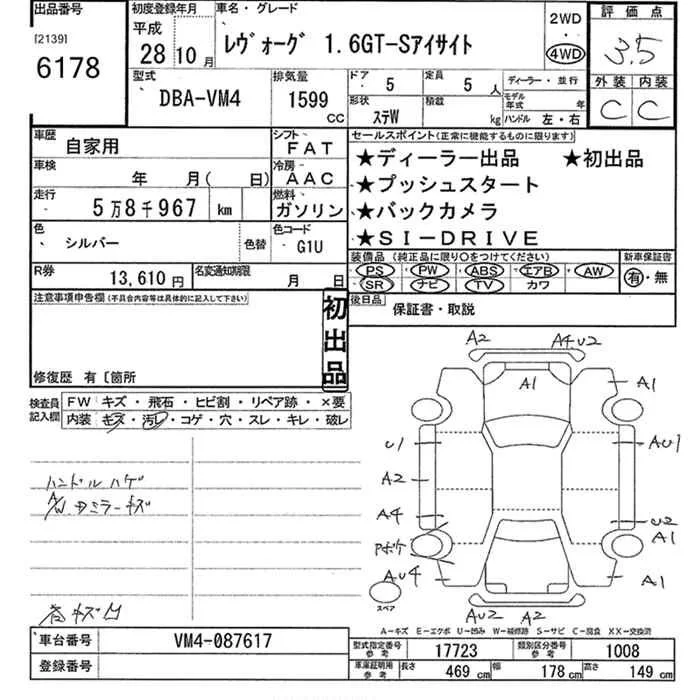 出品番号 初度登録年月 車名・グレード 2WD 評価点
[2139] 平成
6178 28 10月 レヴォーグ 1.6GT-Sアイサイト 4WD 3.5
型式 排気量 ドア 5 定員 5人 ディーラー・並行 外装 内装
DBA-VM4 1599 cc 形状 ステW 積載 kg モデル年式 年 ハンドル 左・右 C C
車歴 自家用 シフト FAT セールスポイント(正常に機能するものに限ります)
車検 年 月( 日) 冷房 AAC ★ディーラー出品 ★初出品
★プッシュスタート
走行 5万8千967 km 燃料 ガソリン ★バックカメラ
色 シルバー 色替 色コード G1U ★SI-DRIVE
装備品(純正品に限り○をつけてください) 新車保証書
R券 13,610円 名変通知期限 月 日 PS PW ABS エアB AW 有・無
SR ナビ TV カワ
注意事項申告欄(不具合内容等は具体的に記入して下さい) 初出品 後日品 保証書・取説
修復歴 有〔箇所
検査員記入欄 FW キズ・飛石・ヒビ割・リペア跡・×要
内装 キズ・汚レ・コゲ・穴・スレ・キレ・破レ
A2 A4U2
A1 A1
U1 AU1
ハンドルハゲ A2
A/W ドミラーキズ A4 U2
A1
Aポケ
AU4 A1
スペア
AU2 A2
A-キズ E-エクボ U-凹み W-補修跡 S-サビ C-腐食 XX-交換済
車台番号 VM4-087617 型式指定番号 参考 17723 類別区分番号 参考 1008
登録番号 車庫証明用 参考 長さ 469 cm 幅 178 cm 高さ 149 cm